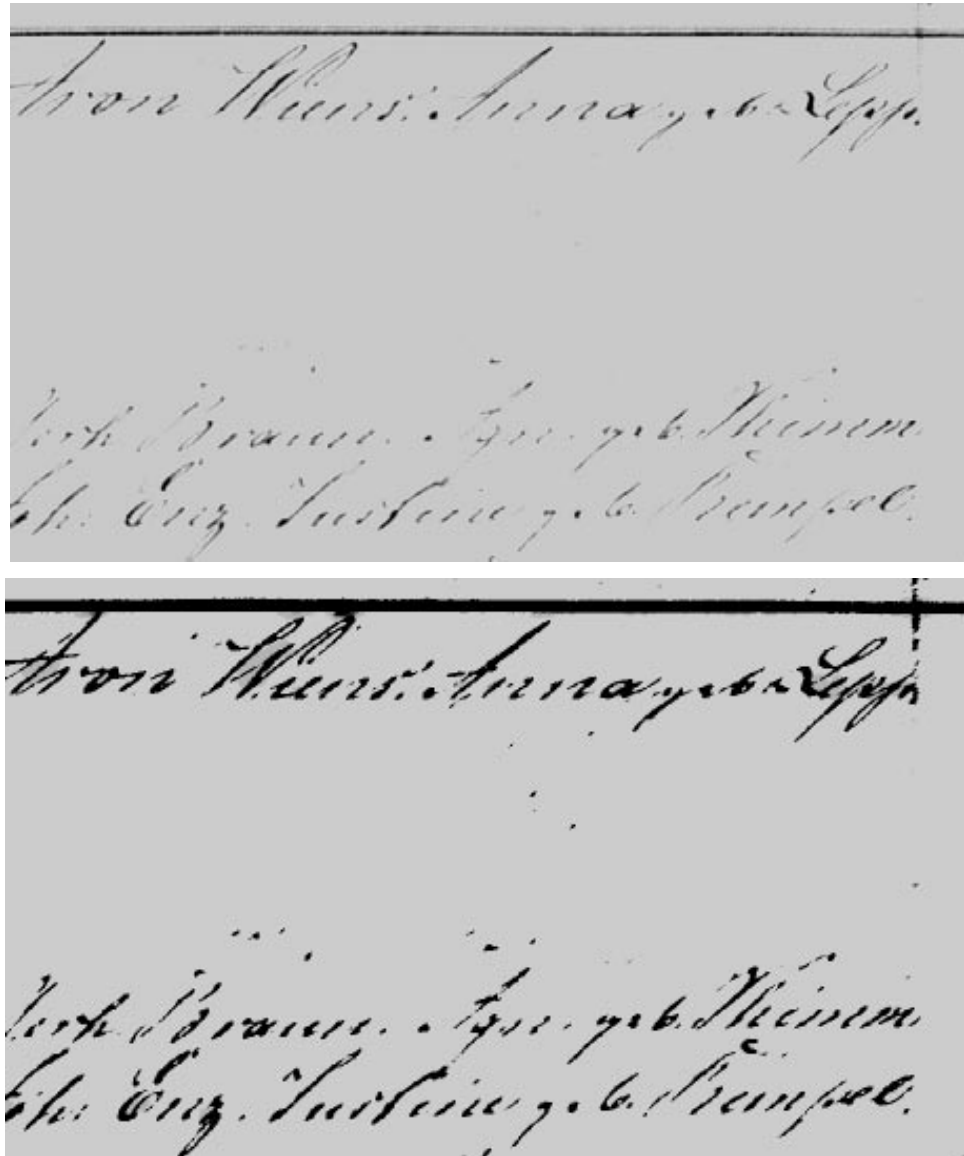 Aron Wiens. Anna geb. Lepp.
Gerh. Braun. Agn. geb. Thiemm.
Joh. Enz. Justine geb. Rempel.
Aron Wiens. Anna geb. Lepp.
Gerh. Braun. Agn. geb. Thiemm.
Joh. Enz. Justine geb. Rempel.